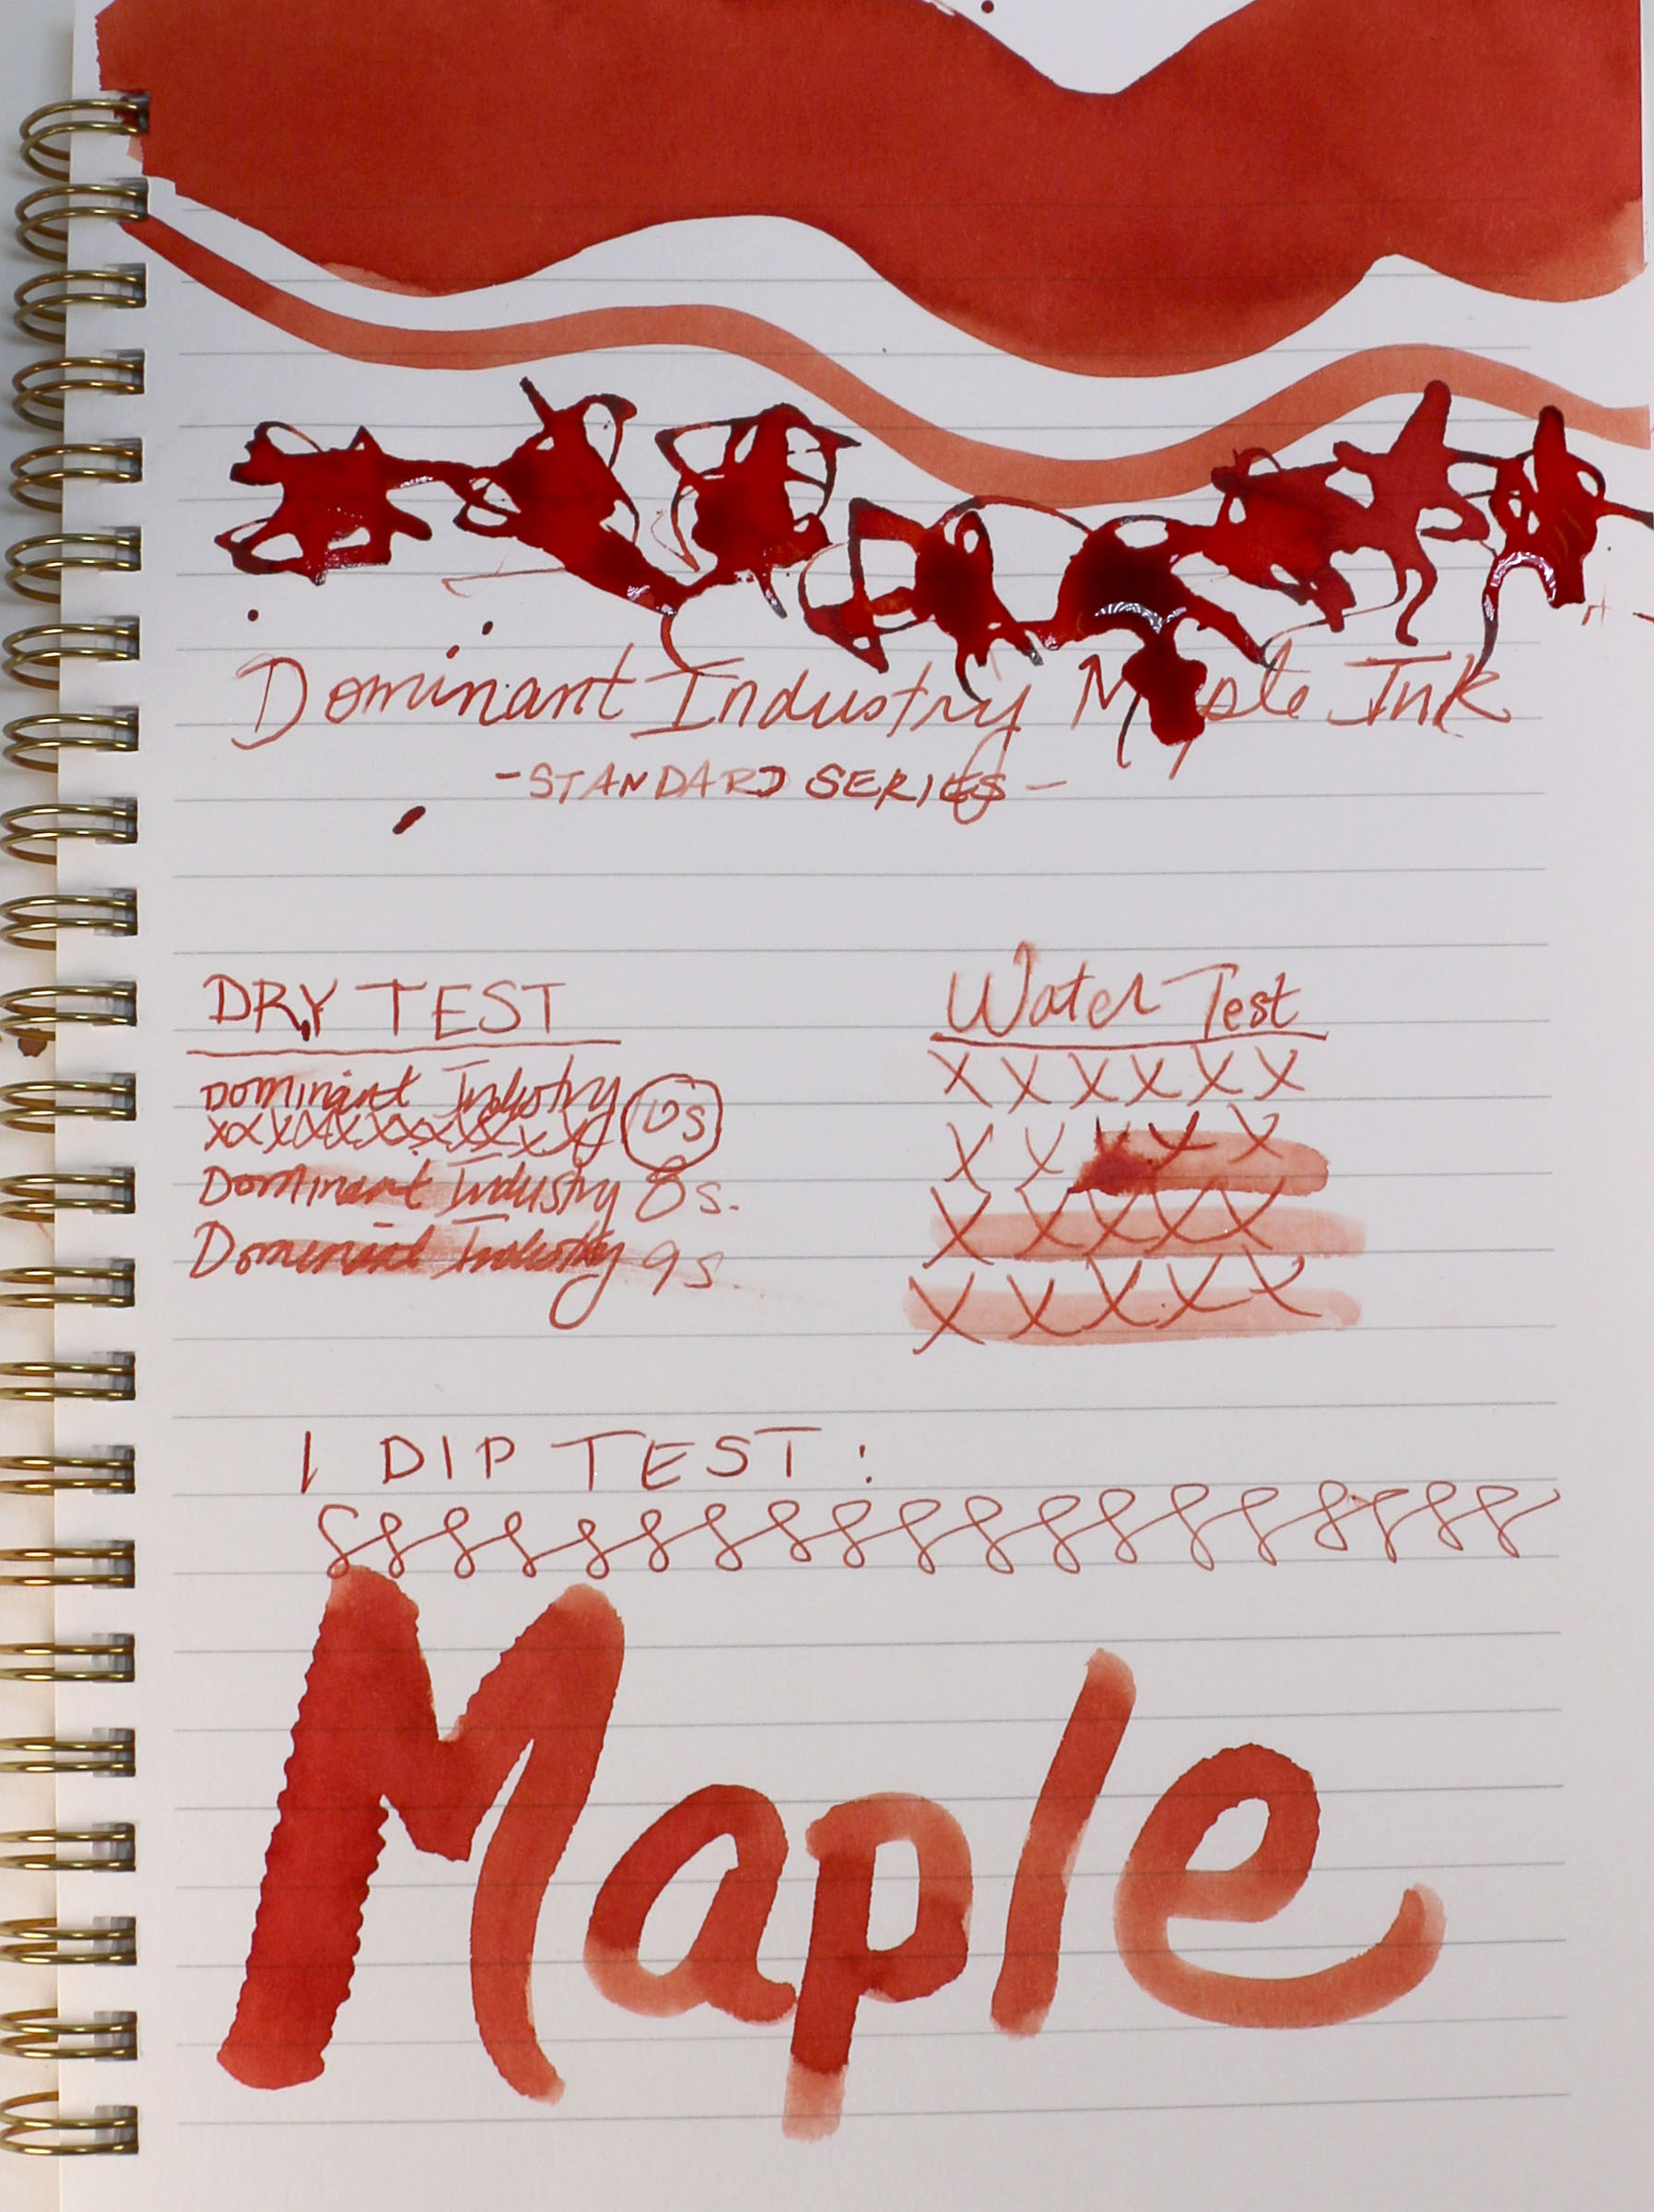 Dominant Industry Maple Ink
-STANDARD SERIES-
DRY TEST
Dominant Industry
XXXXXXXXXXXXX
Dominant Industry 8s.
Dominant Industry 9s.
Water Test
XXXXXX
XXXXX
XXXXX
XXXXX
1 DIP TEST:
Maple